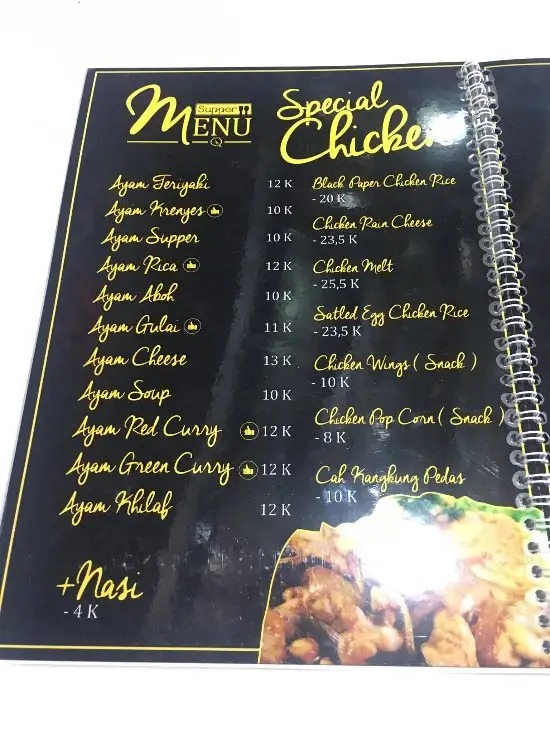 Supper
MENU
Q
Special
Chicken
Ayam Teriyaki 12 K
Ayam Krenyes 10 K
Ayam Supper 10 K
Ayam Rica 12 K
Ayam Aboh 10 K
Ayam Gulai 11 K
Ayam Cheese 13 K
Ayam Soup 10 K
Ayam Red Curry 12 K
Ayam Green Curry 12 K
Ayam Khilaf 12 K
+Nasi
- 4 K
Black Paper Chicken Rice
- 20 K
Chicken Rain Cheese
- 23,5 K
Chicken Melt
- 25,5 K
Satled Egg Chicken Rice
- 23,5 K
Chicken Wings ( Snack )
- 10 K
Chicken Pop Corn ( Snack )
- 8 K
Cah Kangkung Pedas
- 10 K